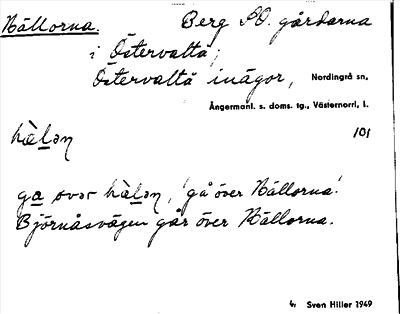 Hällorna. Berg SO. gårdarna
i Östervattå;
Östervattå inägor, Nordingrå sn,
Ångermanl. s. doms. tg., Västernorrl, l.
hàlən 101
ga øvər hàlən, 'gå över Hällorna'.
Björnåsvägen går över Hällorna.
Sven Hiller 1949